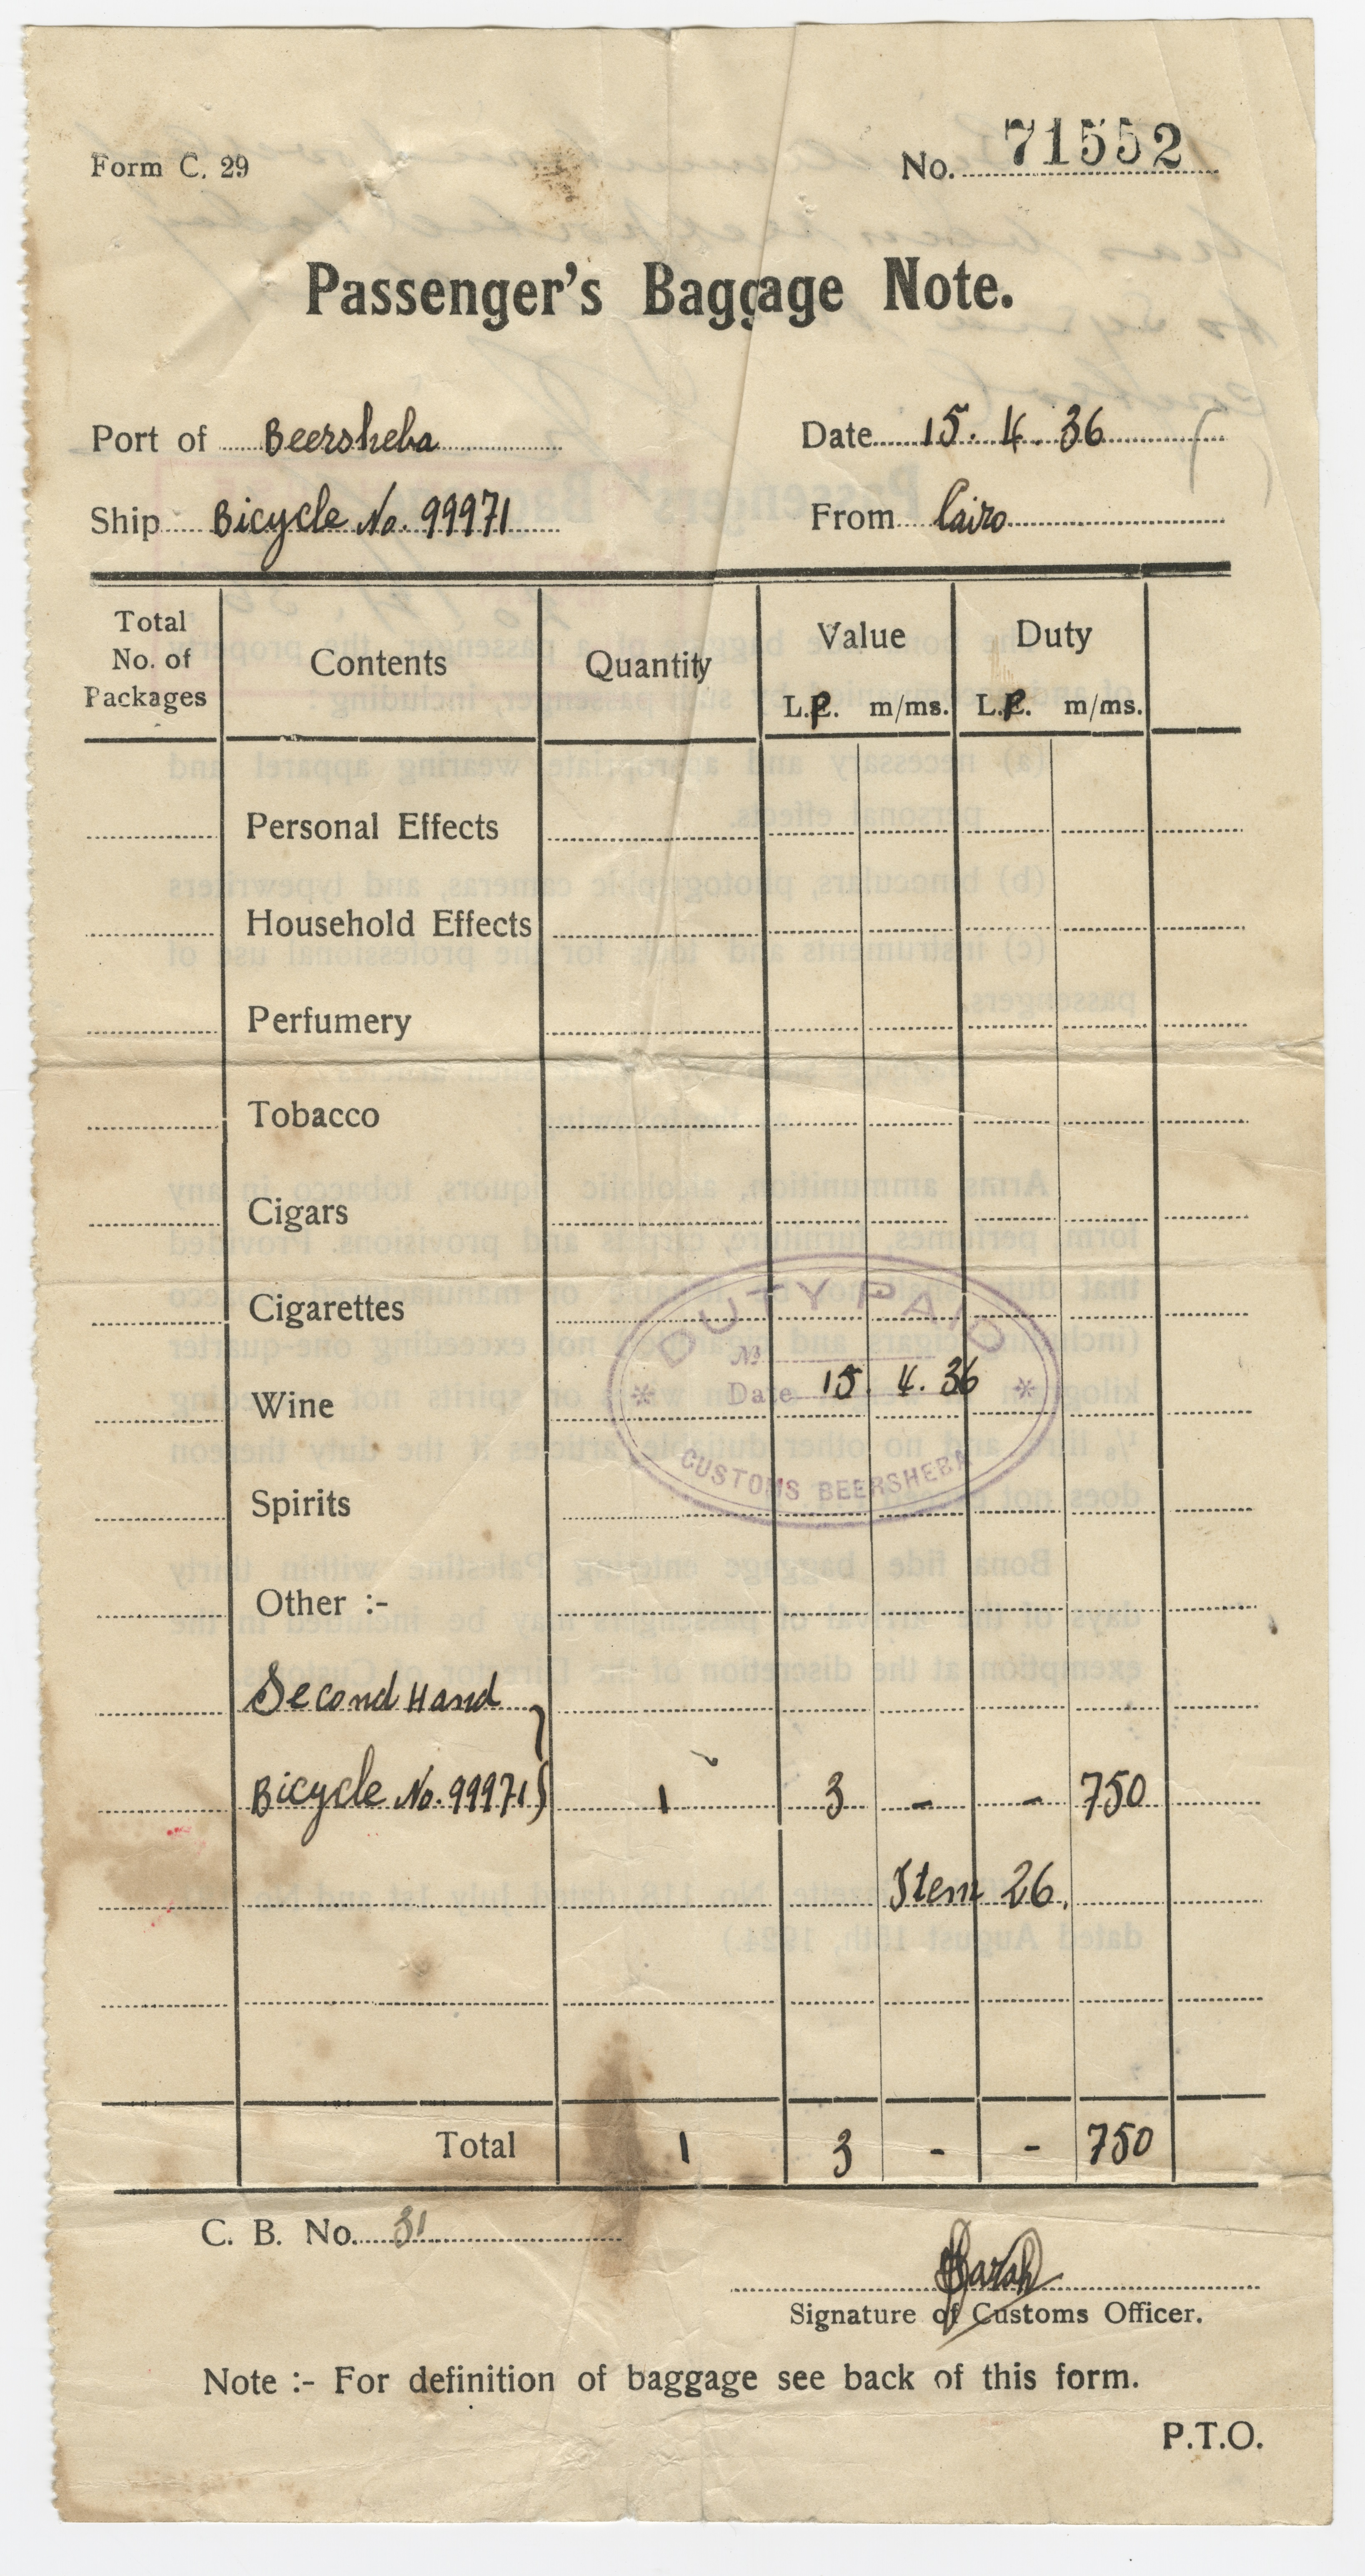 Form C. 29
No. 71552
Passenger's Baggage Note.
Port of Beersheba
Date 15. 4. 36
Ship Bicycle No. 99971
From Cairo
Total No. of Packages
Contents
Quantity
Value
L.P. m/ms.
Duty
L.P. m/ms.
Personal Effects
Household Effects
Perfumery
Tobacco
Cigars
Cigarettes
Wine
Spirits
DUTY PAID
No
Date 15. 4. 36
CUSTOMS BEERSHEBA
Other :-
Second Hand
Bicycle No. 99971 1 3 - - 750
Item 26.
Total 1 3 - - 750
C. B. No. 31
Signature of Customs Officer.
Note :- For definition of baggage see back of this form.
P.T.O.